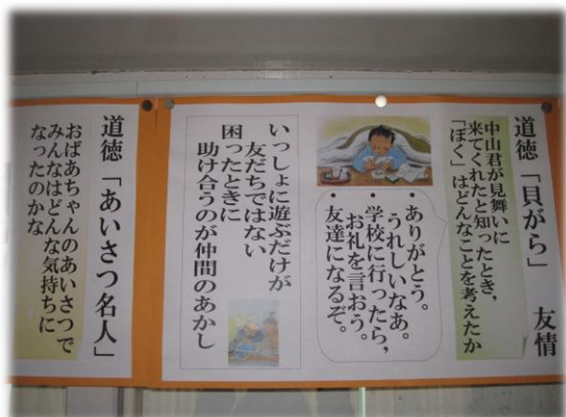 道徳「貝がら」 友情
中山君が見舞いに
来てくれたと知ったとき,
「ぼく」はどんなことを考えたか
・ありがとう。
うれしいなあ。
・学校に行ったら,
お礼を言おう。
・友達になるぞ。
いっしょに遊ぶだけが
友だちではない
困ったときに
助け合うのが仲間のあかし
道徳「あいさつ名人」
おばあちゃんのあいさつで
みんなはどんな気持ちに
なったのかな